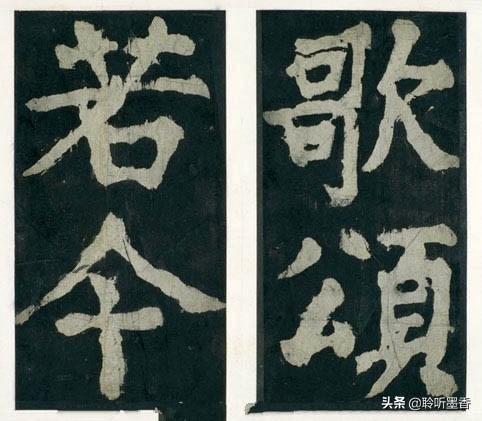 歌頌
若今
头条 @聆听墨香